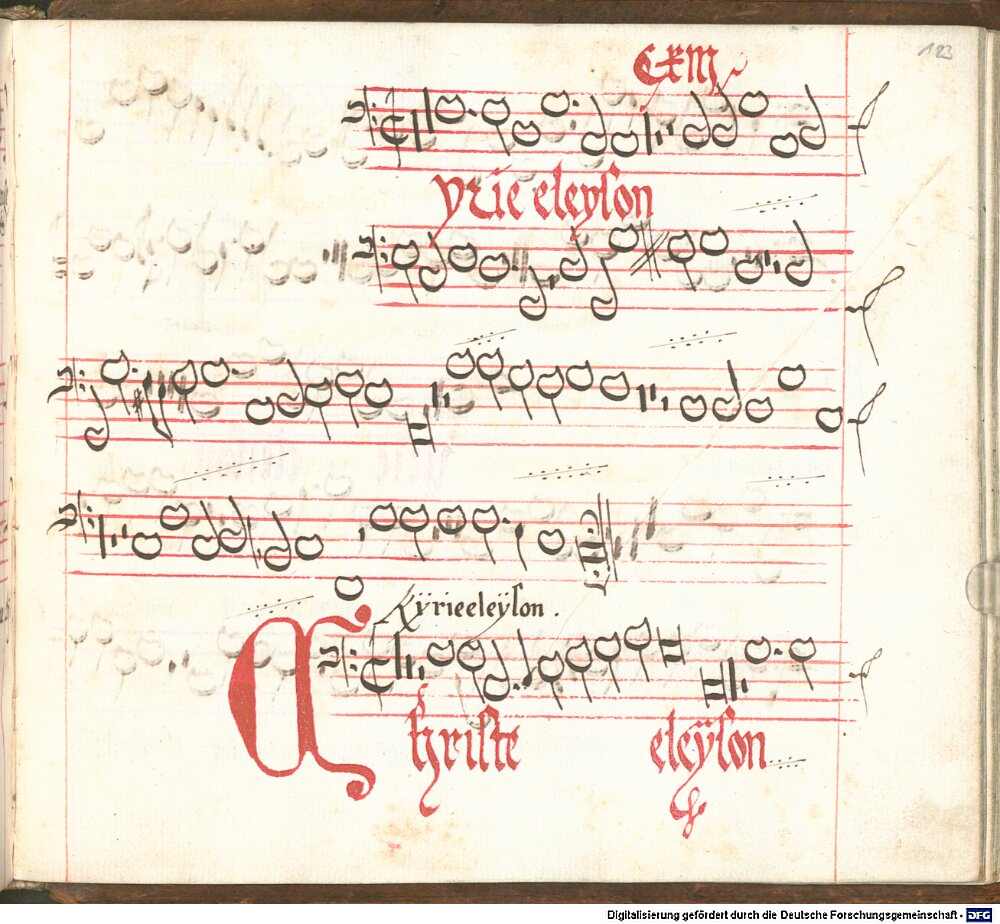 123
yrie eleyson
Kÿrieeleÿson .
Christe eleÿson
Digitalisierung gefördert durch die Deutsche Forschungsgemeinschaft - DFG